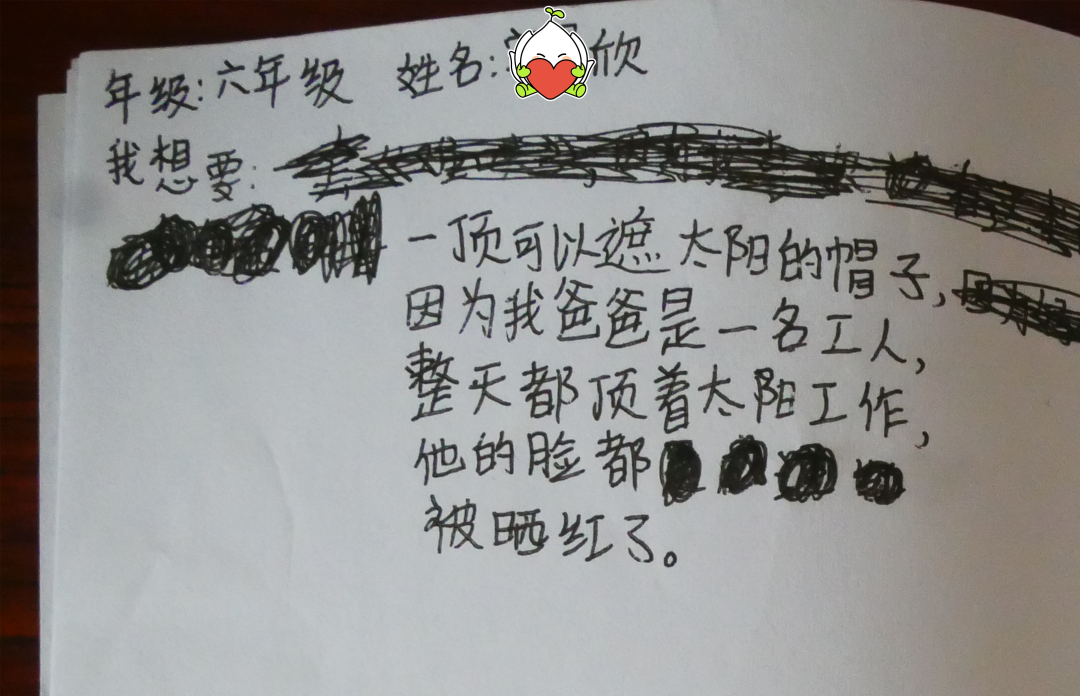 年级:六年级 姓名:欣
我想要:
一顶可以遮太阳的帽子,
因为我爸爸是一名工人,
整天都顶着太阳工作,
他的脸都
被晒红了。